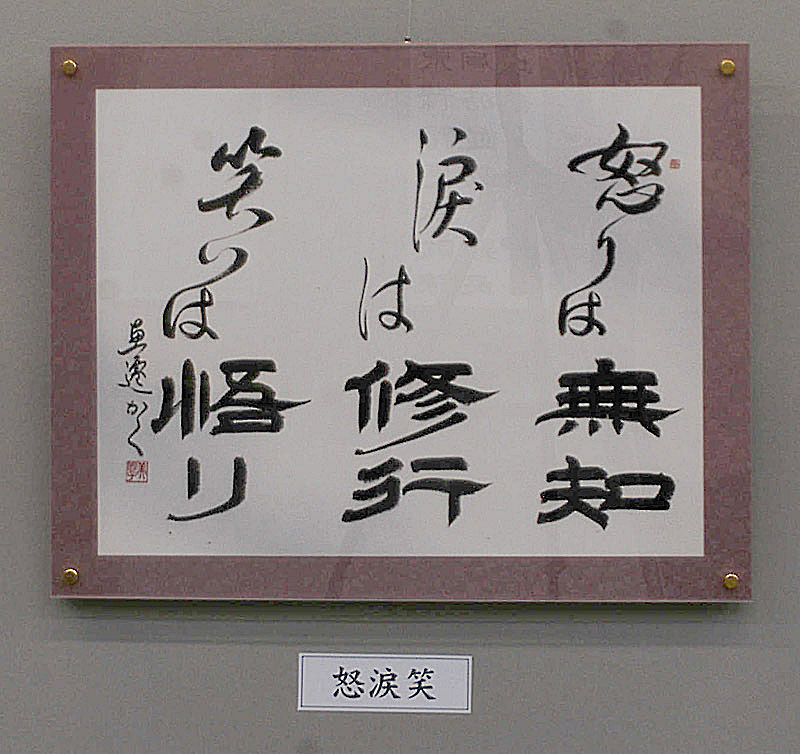 怒りは無知
涙は修行
笑いは悟り
かく
怒涙笑